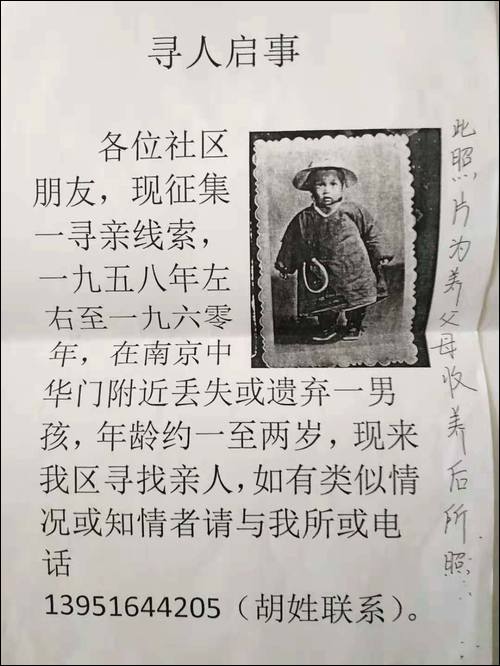 寻人启事
各位社区
朋友，现征集
一寻亲线索，
一九五八年左
右至一九六零
年，在南京中
华门附近丢失或遗弃一男
孩，年龄约一至两岁，现来
我区寻找亲人，如有类似情
况或知情者请与我所或电
话
13951644205（胡姓联系）。
此照片为养父母收养后所照